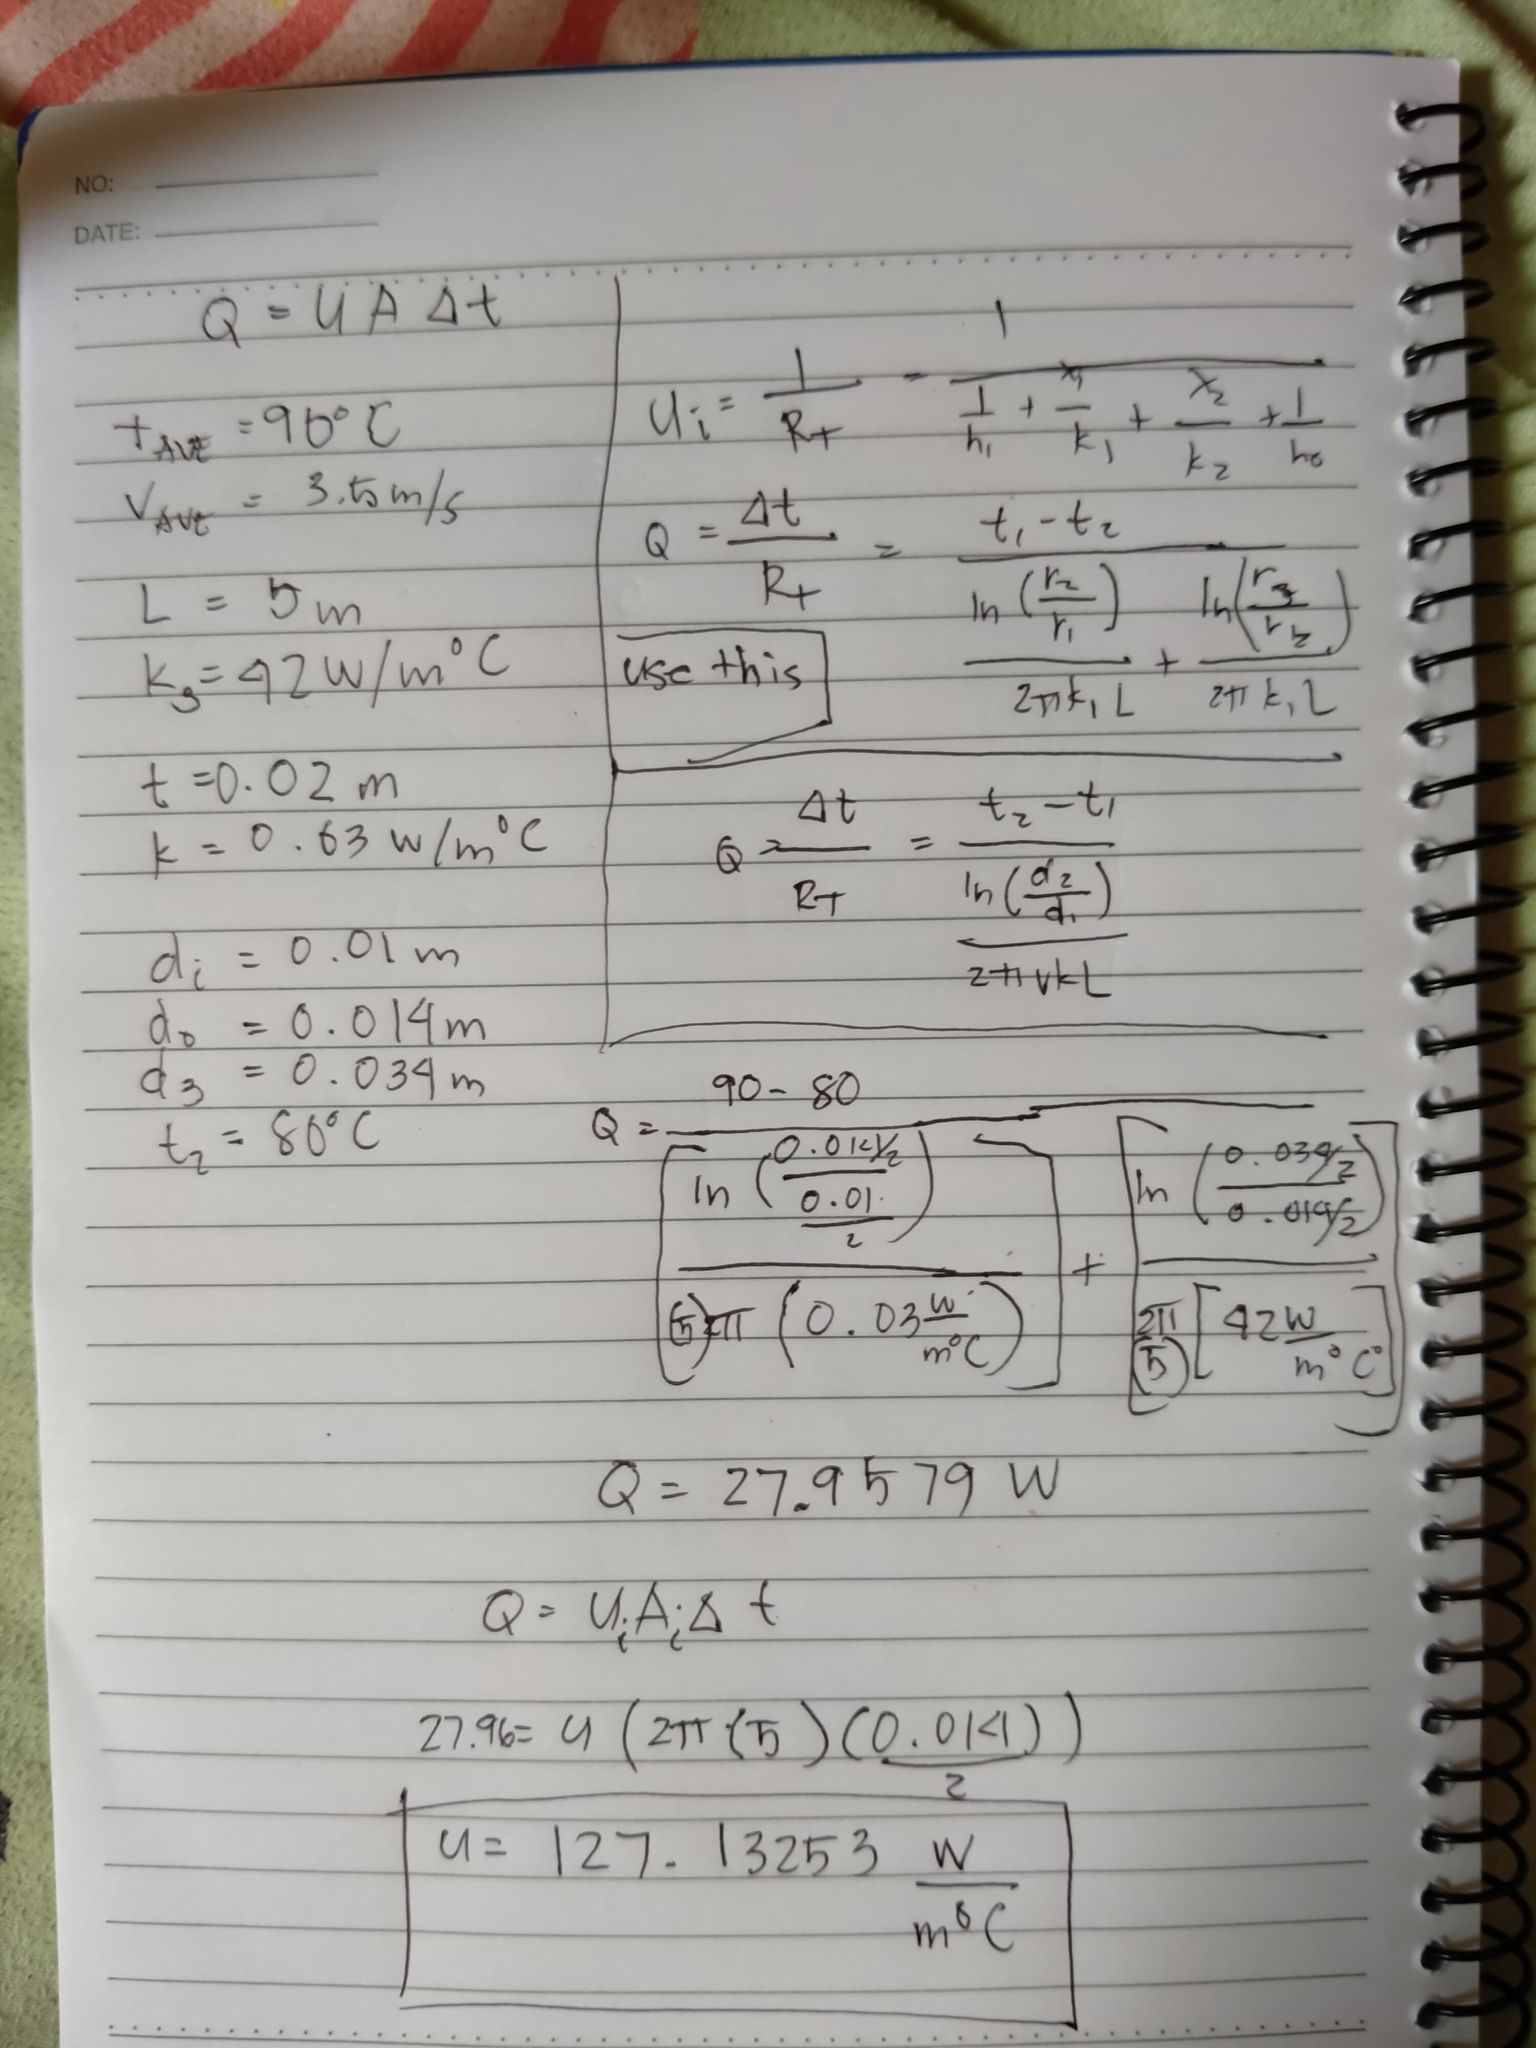 NO:
DATE:
Q = U A Δt
t AVE = 90°C
V AVE = 3.5 m/s
L = 5 m
ks = 42 W/m°C
t = 0.02 m
k = 0.03 W/m°C
di = 0.01 m
do = 0.014 m
d3 = 0.034 m
t2 = 80°C
Ui = 1/RT = 1/(1/h1 + x1/k1 + x2/k2 + 1/ho)
Q = Δt/RT = (t1 - t2)/(ln(r2/r1)/(2πk1L) + ln(r3/r2)/(2πk1L))
use this
Q = Δt/RT = (t2 - t1)/(ln(d2/d1)/(2πkL))
Q = (90 - 80)/([ln((0.014/2)/(0.01/2))/((5)2π(0.03 W/m°C))] + [ln((0.034/2)/(0.014/2))/(2π(5)[42 W/m°C])])
Q = 27.9579 W
Q = UiAiΔt
27.96 = U (2π(5)(0.014/2))
U = 127.13253 W/m°C